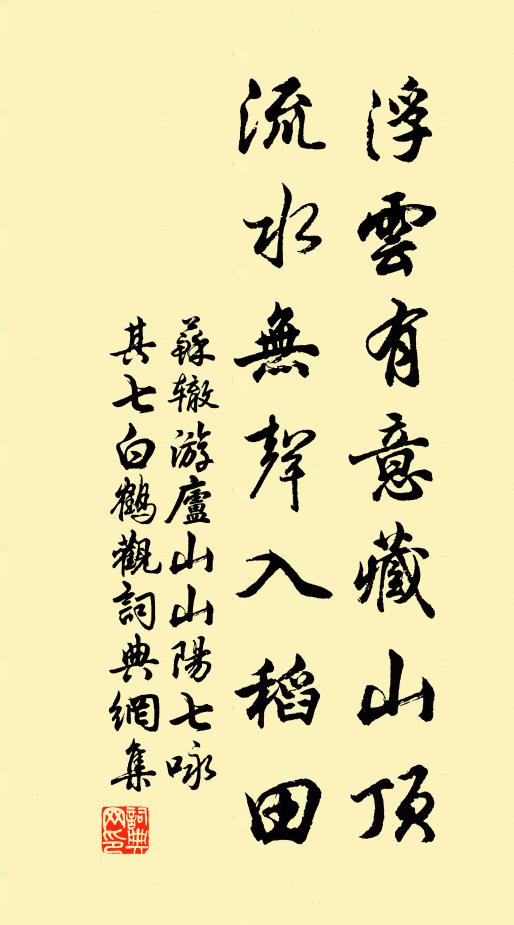 浮雲有意藏山頂
流水無聲入稻田
蘇辙游廬山山陽七咏
其七白鶴觀詞典網集
詞典
网印